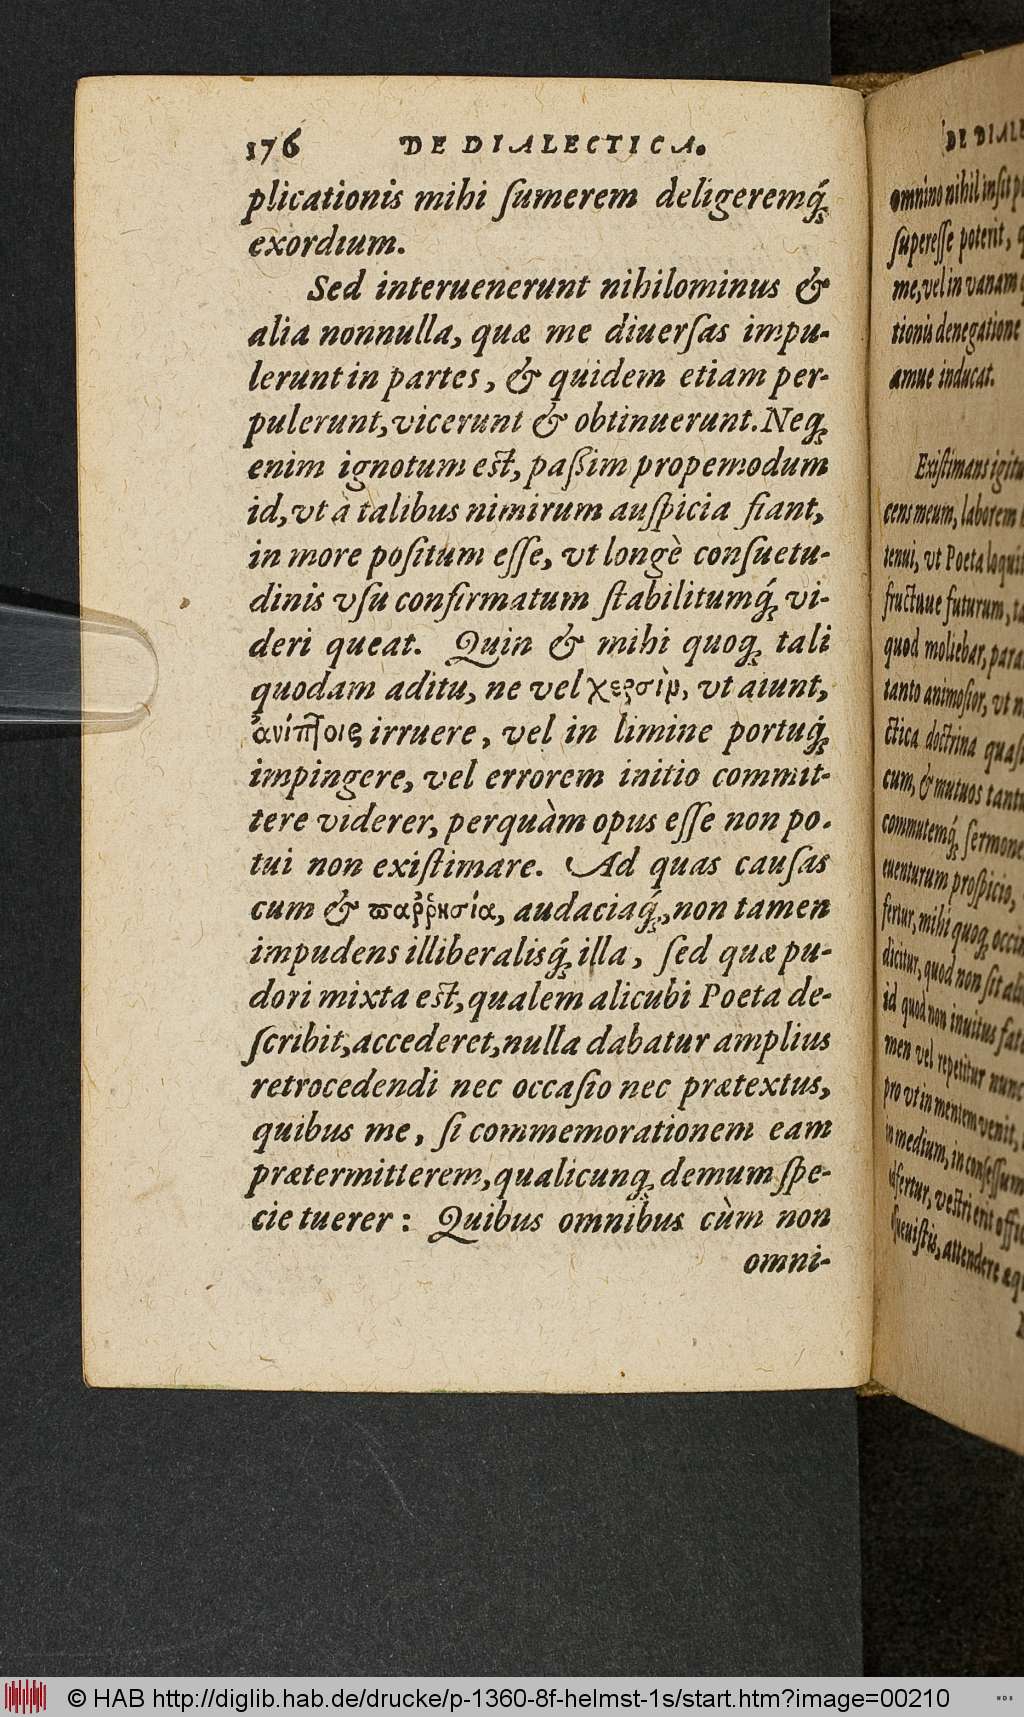 176 DE DIALECTICA.
plicationis mihi ſumerem deligeremq́;
exordium.
Sed interuenerunt nihilominus &
alia nonnulla, quæ me diuerſas impu-
lerunt in partes, & quidem etiam per-
pulerunt, vicerunt & obtinuerunt. Neq;
enim ignotum est, paßim propemodum
id, vt à talibus nimirum auſpicia fiant,
in more poſitum eſſe, vt longè conſuetu-
dinis vſu confirmatum ſtabilitumq́; vi-
deri queat. Quin & mihi quoq; tali
quodam aditu, ne vel χερσὶν, vt aiunt,
ἀνίπτοις irruere, vel in limine portuq́;
impingere, vel errorem initio commit-
tere viderer, perquàm opus eſſe non po-
tui non exiſtimare. Ad quas cauſas
cum & ϖαῤῥησία, audaciaq́;, non tamen
impudens illiberalisq́; illa, ſed quæ pu-
dori mixta est, qualem alicubi Poeta de-
ſcribit, accederet, nulla dabatur amplius
retrocedendi nec occaſio nec prætextus,
quibus me, ſi commemorationem eam
prætermitterem, qualicunq; demum ſpe-
cie tuerer: Quibus omnibus cùm non
omni-
DE DIALE
omnino nihil inſit
ſupereſſe poterit,
me, vel in vanam
tionis denegatione
amue inducat.
Exiſtimans igitu
cens meum, laborem
tenui, vt Poeta loquit
fructuue futurum,
quod moliebar, para
tanto animoſior, vt
ctica doctrina quaſi
cum, & mutuos tant
commutemq́; ſermone
euenturum proſpicio,
fertur, mihi quoq; occi
dicitur, quod non ſit
id quod non inuitus fat
men vel repetitur nunc
pro vt in mentem venit,
in medium, in conſeſſum
adfertur, veſtri erit offi
attendere æq
© HAB http://diglib.hab.de/drucke/p-1360-8f-helmst-1s/start.htm?image=00210